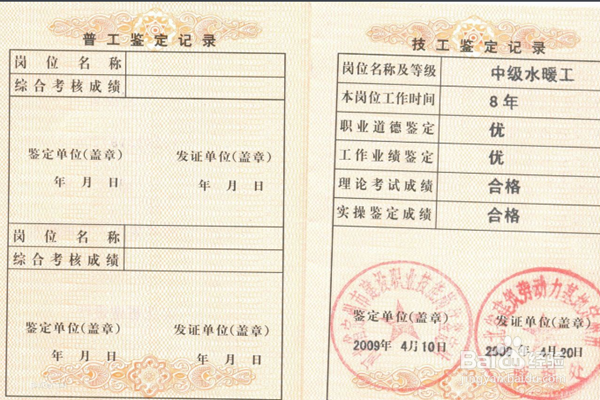 普工鉴定记录
岗位名称
综合考核成绩
鉴定单位(盖章) 发证单位(盖章)
年 月 日 年 月 日
岗位名称
综合考核成绩
鉴定单位(盖章) 发证单位(盖章)
年 月 日 年 月 日
技工鉴定记录
岗位名称及等级 中级水暖工
本岗位工作时间 8年
职业道德鉴定 优
工作业绩鉴定 优
理论考试成绩 合格
实操鉴定成绩 合格
鉴定单位(盖章) 发证单位(盖章)
2009年 4月10日 2009年 4月20日
Baidu经验